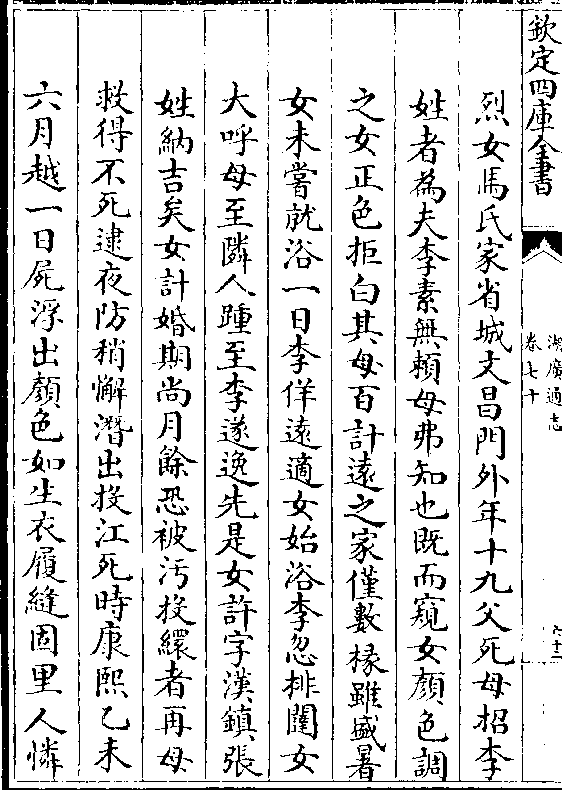 欽定四庫全書
湖廣通志
卷七十
六十二
烈女馬氏家省城文昌門外年十九父死母招李
姓者為夫李素無賴母弗知也既而窺女顏色調
之女正色拒白其母百計遠之家僅數椽雖盛暑
女未嘗就浴一日李佯遠適女始浴李忽排闥女
大呼母至隣人踵至李遂逸先是女許字漢鎮張
姓納吉矣女計婚期尚月餘恐被污投繯者再母
救得不死逮夜防稍懈潛出投江死時康熙乙未
六月越一日屍浮出顏色如生衣履縫固里人憐